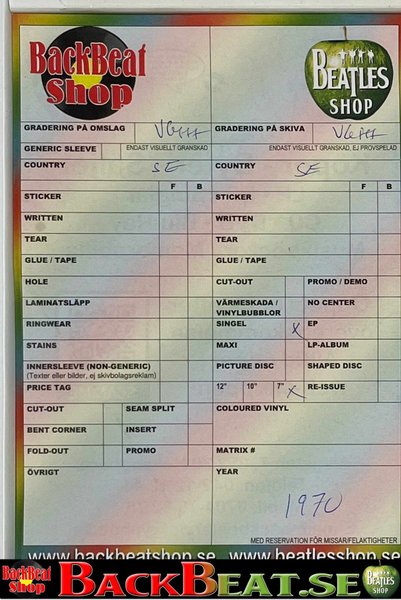 BackBeat
Shop
BEATLES
SHOP
GRADERING PÅ OMSLAG VG+++ GRADERING PÅ SKIVA VG+++
GENERIC SLEEVE ENDAST VISUELLT GRANSKAD ENDAST VISUELLT GRANSKAD, EJ PROVSPELAD
COUNTRY SE COUNTRY SE
F B F B
STICKER STICKER
WRITTEN WRITTEN
TEAR TEAR
GLUE / TAPE GLUE / TAPE
HOLE CUT-OUT PROMO / DEMO
LAMINATSLÄPP VÄRMESKADA / VINYLBUBBLOR NO CENTER
RINGWEAR SINGEL X EP
STAINS MAXI LP-ALBUM
INNERSLEEVE (NON-GENERIC) PICTURE DISC SHAPED DISC
(Texter eller bilder, ej skivbolagsreklam)
PRICE TAG 12" 10" 7" X RE-ISSUE
CUT-OUT SEAM SPLIT COLOURED VINYL
BENT CORNER INSERT
FOLD-OUT PROMO MATRIX #
ÖVRIGT YEAR
1970
MED RESERVATION FÖR MISSAR/FELAKTIGHETER
www.backbeatshop.se www.beatlesshop.se
BackBeat
Shop
BACKBEAT.SE
BEATLES
SHOP